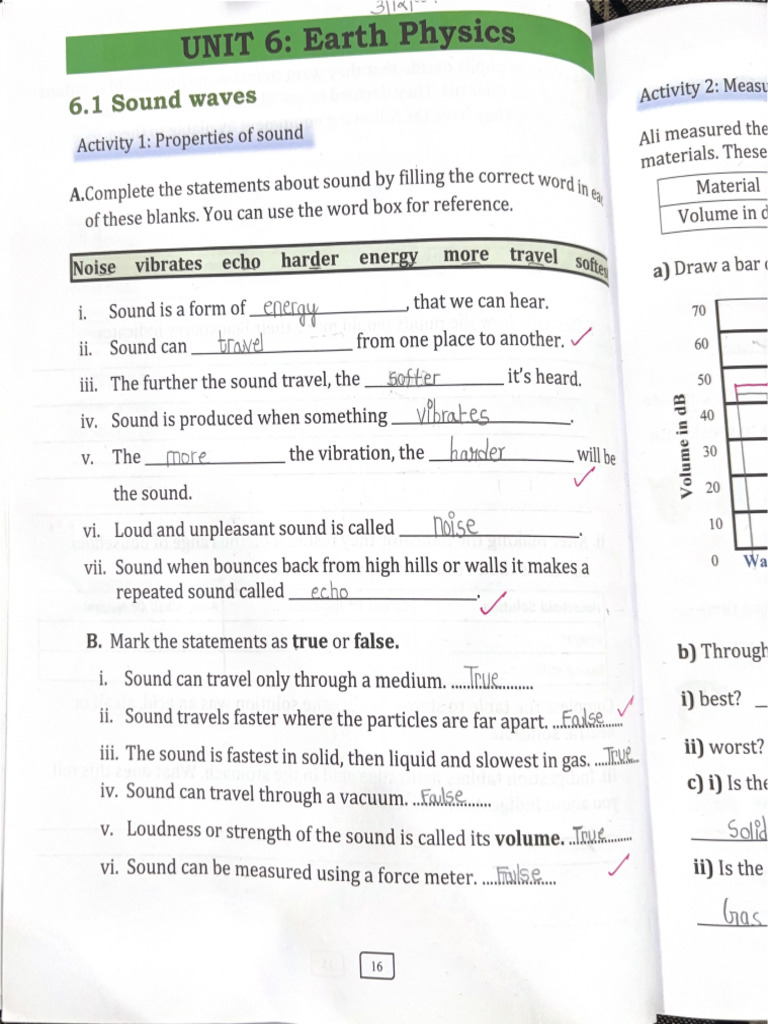 UNIT 6: Earth Physics
6.1 Sound waves
Activity 1: Properties of sound
A.Complete the statements about sound by filling the correct word in
of these blanks. You can use the word box for reference.
Noise vibrates echo harder energy more travel softer
i. Sound is a form of energy, that we can hear.
ii. Sound can travel from one place to another.
iii. The further the sound travel, the softer it's heard.
iv. Sound is produced when something vibrates.
v. The more the vibration, the harder will be
the sound.
vi. Loud and unpleasant sound is called noise.
vii. Sound when bounces back from high hills or walls it makes a
repeated sound called echo.
B. Mark the statements as true or false.
i. Sound can travel only through a medium. ......True..........
ii. Sound travels faster where the particles are far apart. ...False......
iii. The sound is fastest in solid, then liquid and slowest in gas. ....True...
iv. Sound can travel through a vacuum. ..False.......
v. Loudness or strength of the sound is called its volume. ..True.........
vi. Sound can be measured using a force meter. ....False....
16
Activity 2:
Ali measured the
materials. These
Material
Volume in
a) Draw a bar
70
60
50
40
30
20
10
0
Volume in dB
b)
i) best?
ii) worst?
c) i) Is
Solid
ii) Is the
Gas